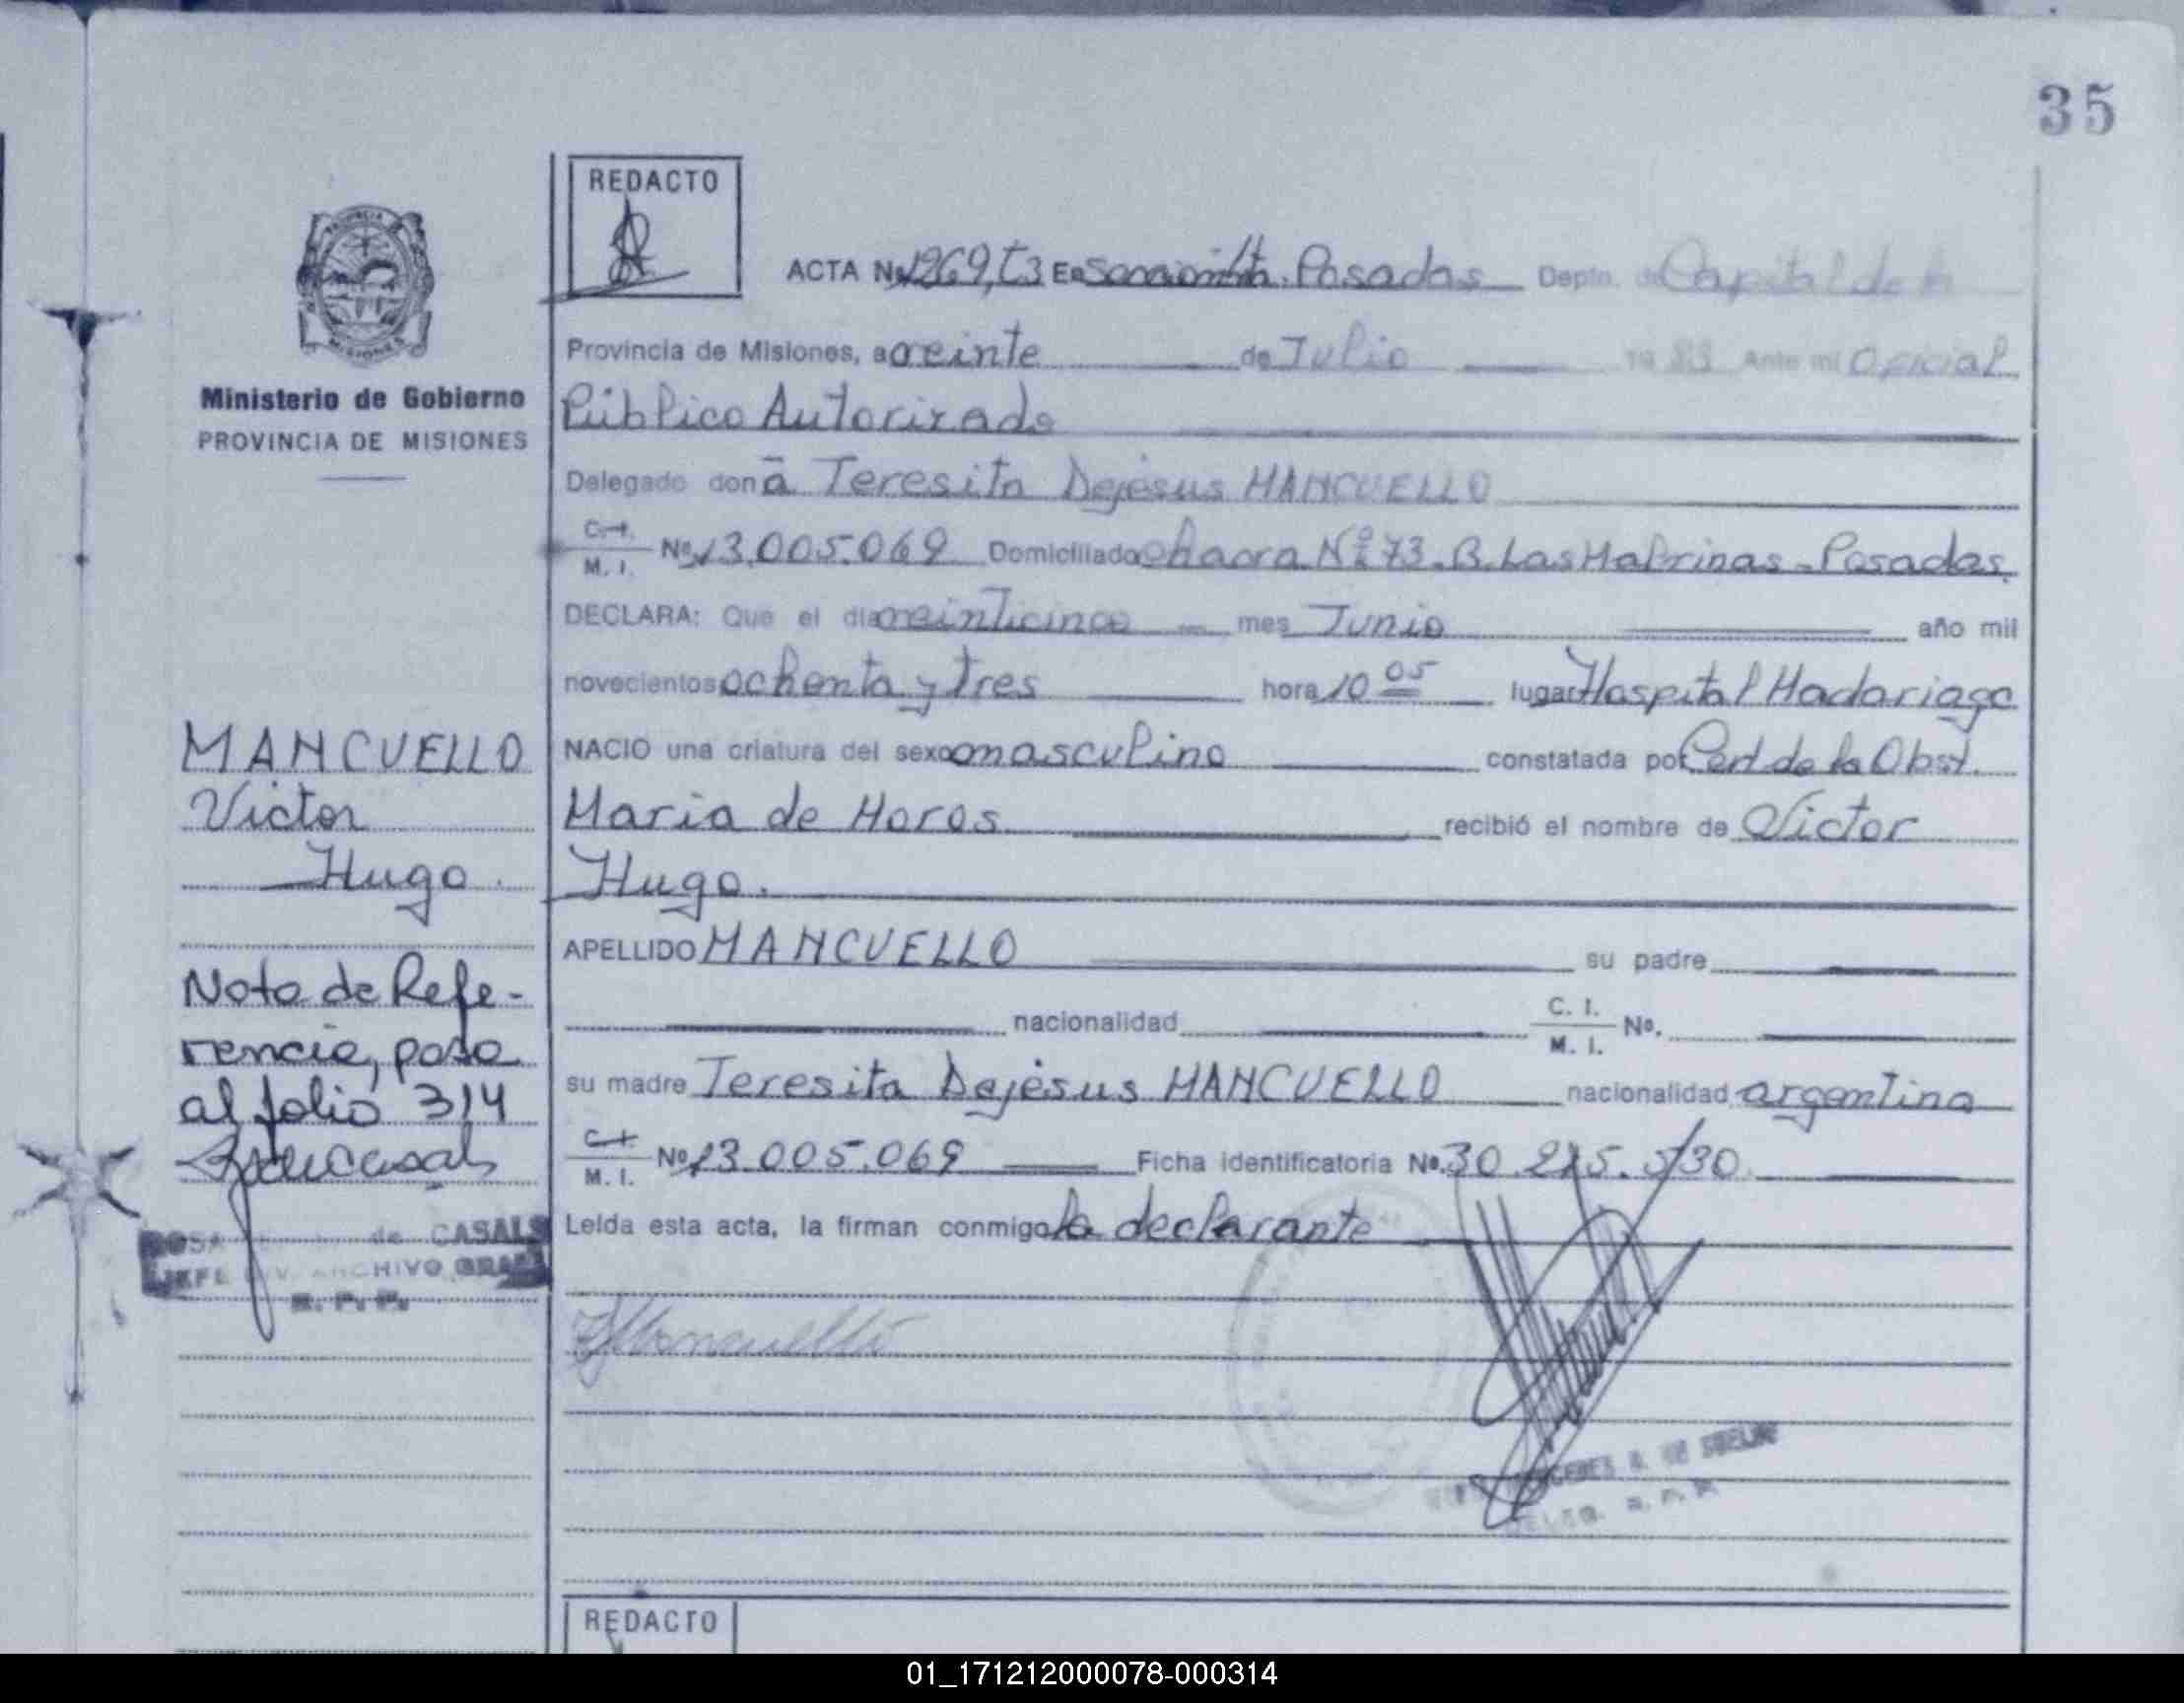 35
REDACTO
ACTA Nº 1269, t3 En Posadas Depto. de Capital de la
Provincia de Misiones, a veinte de Julio 1983 Ante mi Oficial
Ministerio de Gobierno
PROVINCIA DE MISIONES
Público Autorizado
Delegado don ã Teresita Dejesus MANCUELLO
C. I.
M. I. Nº 13.005.069 Domiciliado chacra Nº 73. B. Las Malvinas - Posadas.
DECLARA: Que el día veinticinco mes Junio año mil
novecientos ochenta y tres hora 10 05 lugar Hospital Madariaga
NACIO una criatura del sexo masculino constatada por Cert de la Obst.
Maria de Moros recibió el nombre de Victor
Hugo.
APELLIDO MANCUELLO su padre
nacionalidad C. I.
M. I. Nº.
su madre Teresita Dejésus MANCUELLO nacionalidad argentina
C. I.
M. I. Nº 13.005.069 Ficha identificatoria Nº. 30.215.530.
Leída esta acta, la firman conmigo la declarante
MANCUELLO
Victor
Hugo.
Nota de Refe-
rencia, pasa
al folio 314
de CASALS
JEFE DIV. ARCHIVO GRAL
R. P. P.
Mancuello
DELEG. R. P. P.
REDACTO
01_171212000078-000314